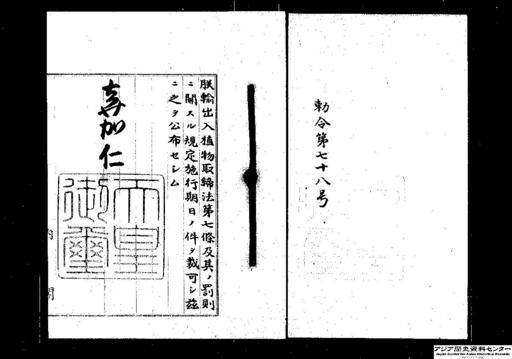 勅令第七十八号
朕輸出入植物取締法第七條及其ノ罰則
ニ關スル規定施行期日ノ件ヲ裁可シ茲
ニ之ヲ公布セシム
嘉仁
天皇御璽
内
閣
アジア歴史資料センター
Japan Center for Asian Historical Records